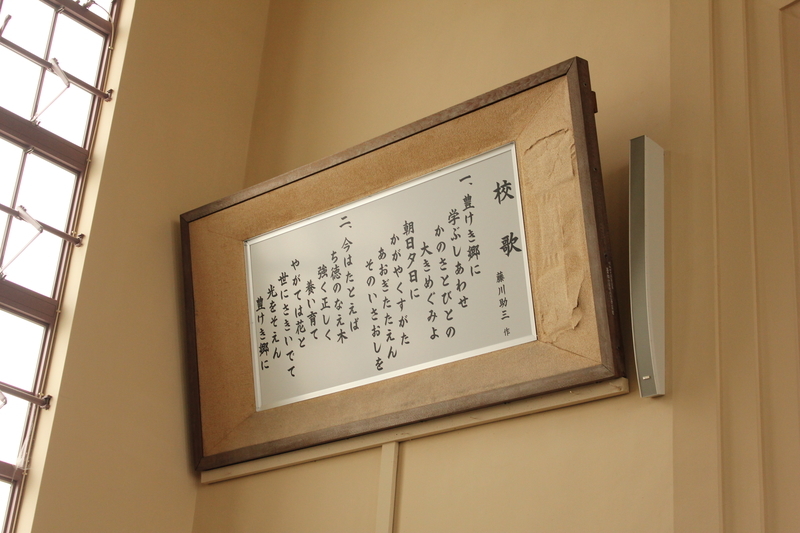 校歌
藤川助三 作
一、豊けき郷に
学ぶしあわせ
かのさとびとの
大きめぐみよ
朝日夕日に
かがやくすがた
あおぎたたえん
そのいさおしを
二、今はたとえば
ち徳のなえ木
強く正しく
養い育て
やがては花と
世にさきいでて
光をそえん
豊けき郷に